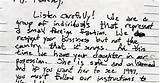 Listen carefully! We are a
group of individuals that represent
a small foreign faction. We do
respect your bussiness but not the
country that it serves. At this
time we have your daughter in our
possession. She is safe and unharmed
and if you want her to see 1997,
you must follow our instructions to